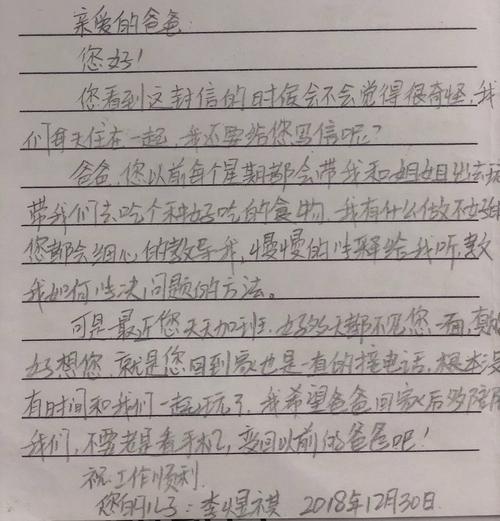 亲爱的爸爸：
您好！
您看到这封信的时候会不会觉得很奇怪，我
们每天住在一起，我还要给您写信呢？
爸爸，您以前每个星期都会带我和姐姐出去玩
带我们去吃个种好吃的食物，我有什么做不好的
您都会细心的教导我，慢慢的讲解给我听，教
我如何解决问题的方法。
可是最近您天天加班，好多天都不见您一面，真的
好想您，就是您回到家也是一直的接电话，根本没
有时间和我们一起玩了，我希望爸爸回家后多陪陪
我们，不要老是看手机，变回以前的爸爸吧！
祝：工作顺利
您的儿子：李煜祺 2018年12月30日